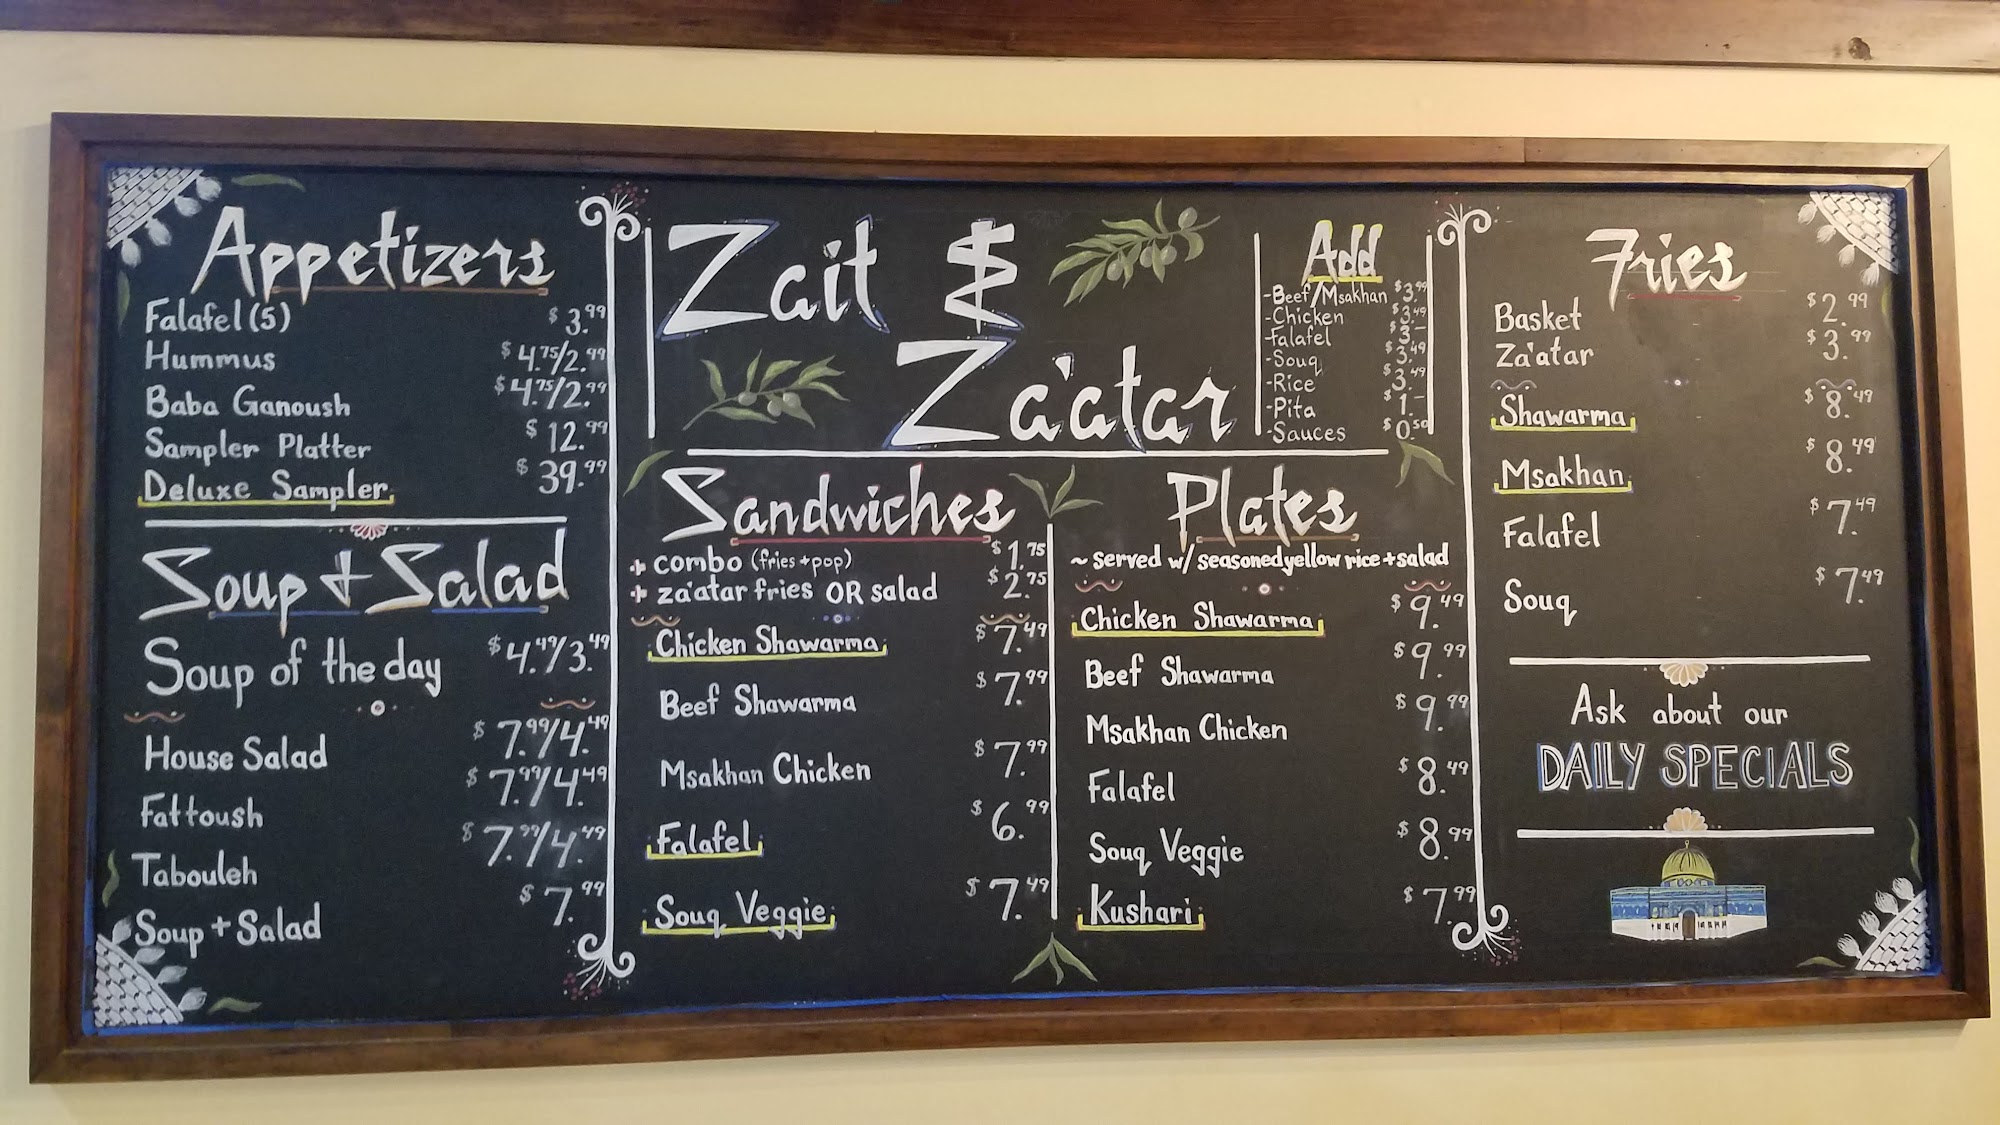 Appetizers
Falafel (5) $3.99
Hummus $4.75/2.99
Baba Ganoush $4.75/2.99
Sampler Platter $12.99
Deluxe Sampler $39.99
Soup & Salad
Soup of the day $4.49/3.49
House Salad $7.99/4.49
Fattoush $7.99/4.49
Tabouleh $7.99/4.49
Soup + Salad $7.99
Zait &
Za'atar
Add
-Beef/Msakhan $3.99
-Chicken $3.49
-Falafel $3.-
-Souq $3.49
-Rice $3.49
-Pita $1.-
-Sauces $0.50
Sandwiches
+ combo (fries + pop) $1.75
+ za'atar fries OR salad $2.75
Chicken Shawarma $7.49
Beef Shawarma $7.99
Msakhan Chicken $7.99
Falafel $6.99
Souq Veggie $7.49
Plates
~ served w/ seasoned yellow rice + salad
Chicken Shawarma $9.49
Beef Shawarma $9.99
Msakhan Chicken $9.99
Falafel $8.49
Souq Veggie $8.99
Kushari $7.99
Fries
Basket $2.99
Za'atar $3.99
Shawarma $8.49
Msakhan $8.49
Falafel $7.49
Souq $7.49
Ask about our
DAILY SPECIALS